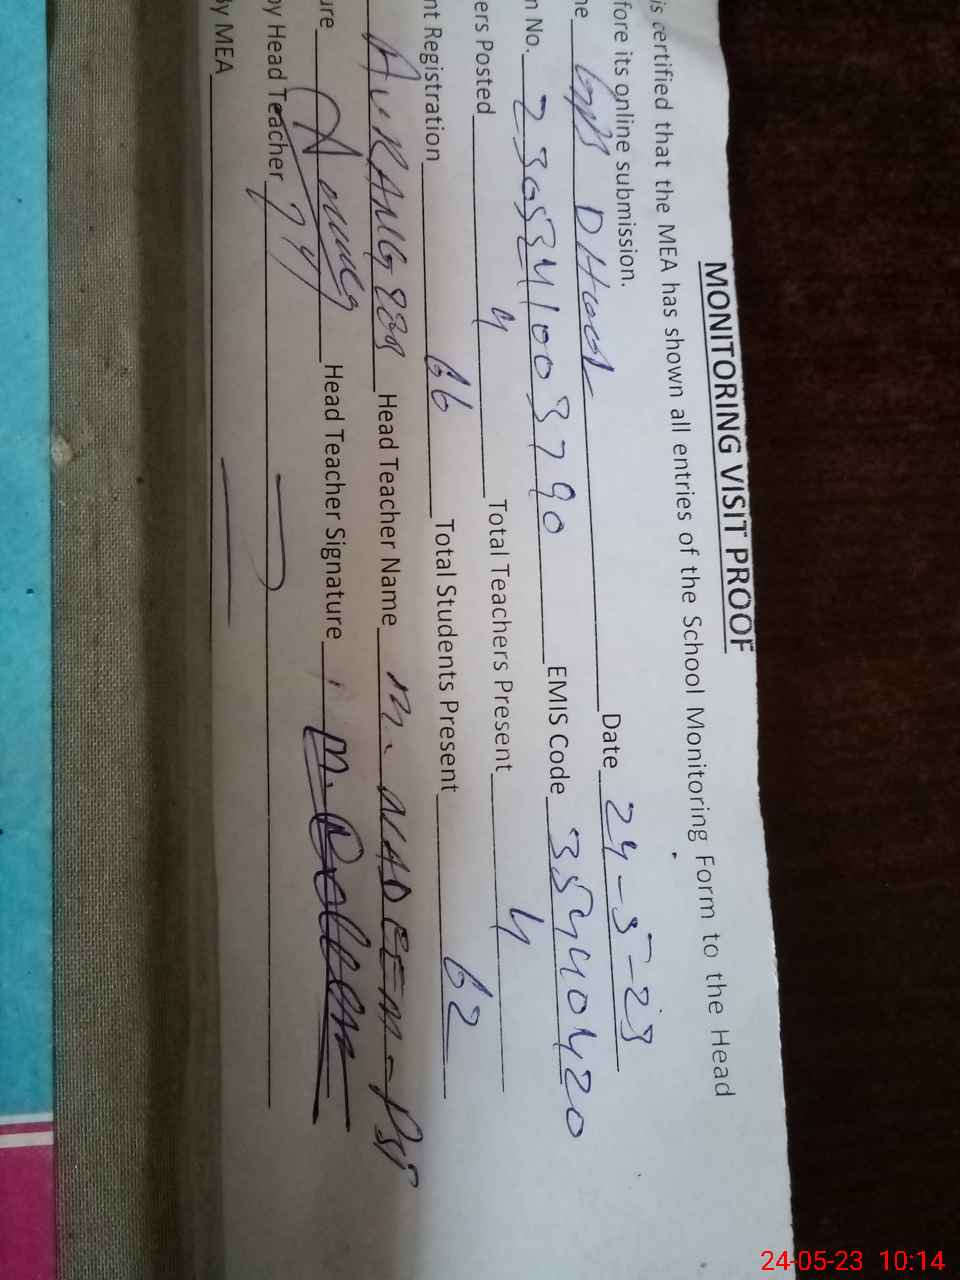 MONITORING VISIT PROOF
is certified that the MEA has shown all entries of the School Monitoring Form to the Head
fore its online submission.
ne Date 24-5-23
n No. EMIS Code 35440420
ers Posted 4 Total Teachers Present 4
nt Registration 66 Total Students Present 62
AURANGZEB Head Teacher Name M. NADEEM-PST
ure Head Teacher Signature
by Head Teacher
By MEA
24-05-23 10:14